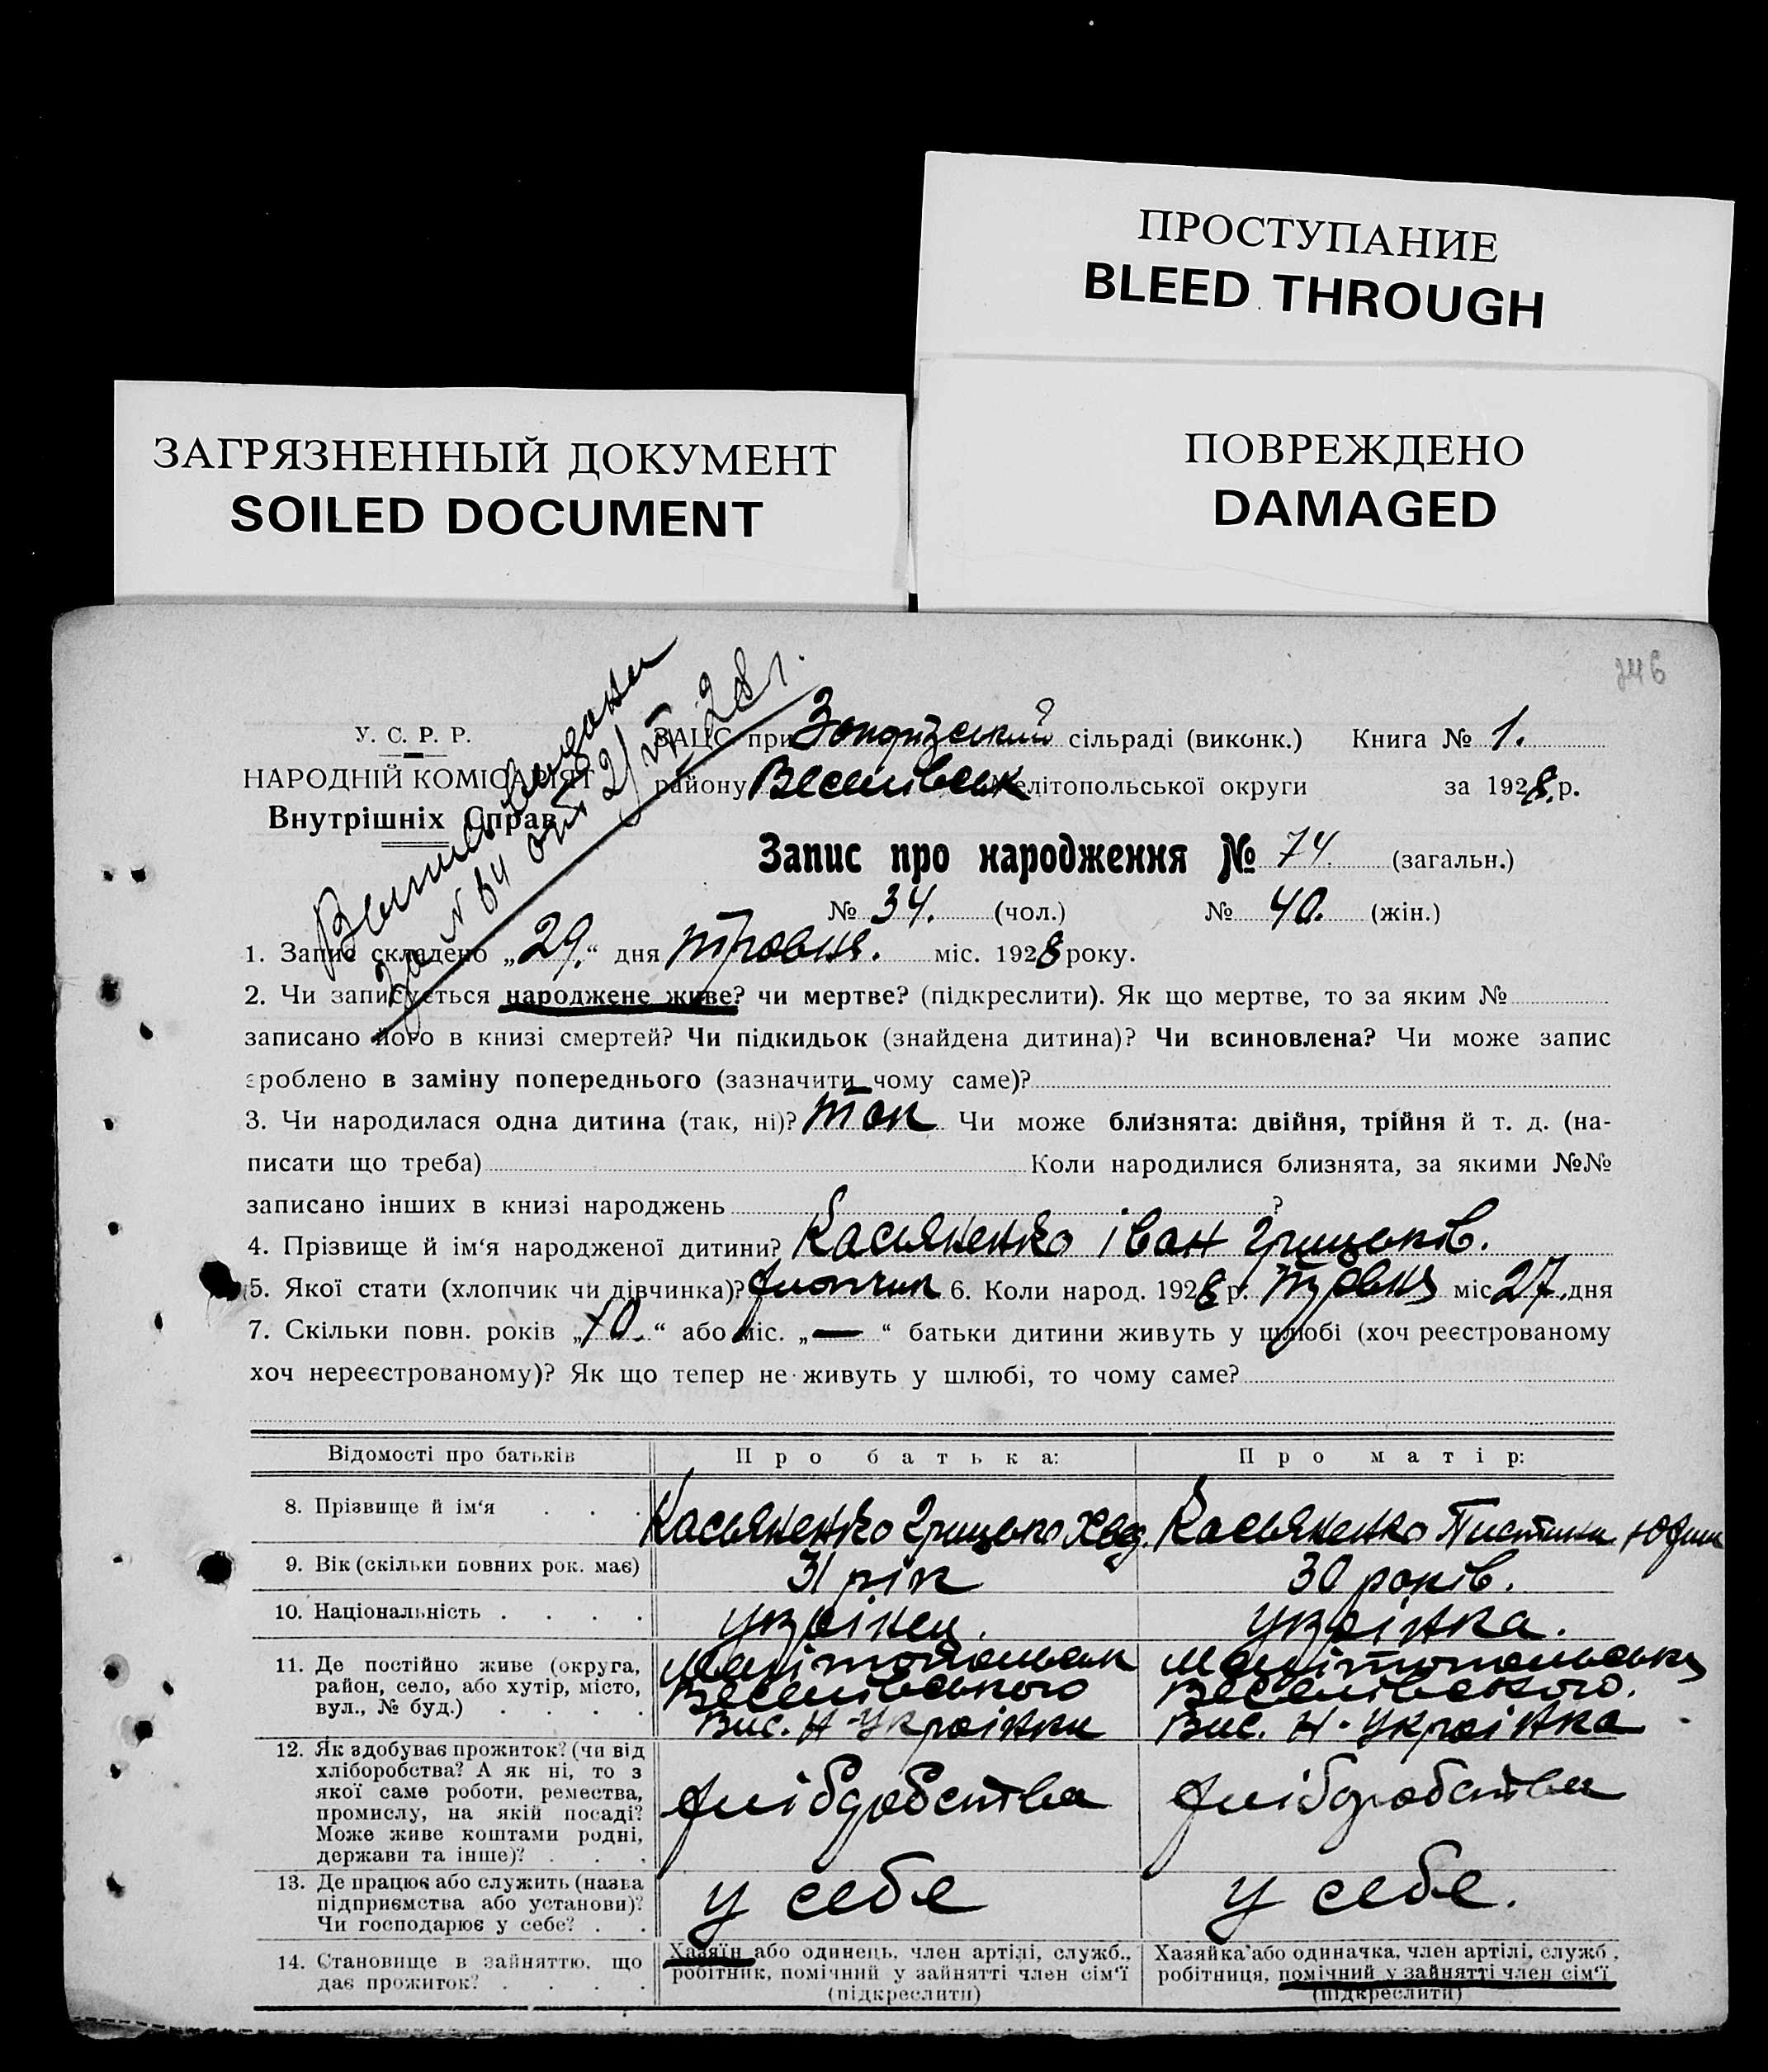 ПРОСТУПАНИЕ
BLEED THROUGH
ЗАГРЯЗНЕННЫЙ ДОКУМЕНТ
SOILED DOCUMENT
ПОВРЕЖДЕНО
DAMAGED
746
У. С. Р. Р.
НАРОДНІЙ КОМІСАРІЯТ
Внутрішніх Справ
За № 84 от 2/VII 28 г.
ЗАЦС при сільраді (виконк.) Книга № 1.
району Веселівськ Мелітопольської округи за 1928 р.
Запис про народження № 74 (загальн.)
№ 34. (чол.) № 40. (жін.)
1. Запис складено „29.“ дня травня. міс. 1928 року.
2. Чи записується народжене живе? чи мертве? (підкреслити). Як що мертве, то за яким №
записано його в книзі смертей? Чи підкидьок (знайдена дитина)? Чи всиновлена? Чи може запис
зроблено в заміну попереднього (зазначити чому саме)?
3. Чи народилася одна дитина (так, ні)? так Чи може близнята: двійня, трійня й т. д. (на-
писати що треба) Коли народилися близнята, за якими №№
записано інших в книзі народжень ?
4. Прізвище й ім‘я народженої дитини? Касьяненко Іван Грицьків.
5. Якої стати (хлопчик чи дівчинка)? хлопчик 6. Коли народ. 1928 р. травня міс 27. дня
7. Скільки повн. років „10.“ або міс. „—“ батьки дитини живуть у шлюбі (хоч реєстрованому
хоч нереєстрованому)? Як що тепер не живуть у шлюбі, то чому саме?
Відомості про батьків Про батька: Про матір:
8. Прізвище й ім‘я . . . Касьяненко Грицько Хвед. Касьяненко Пистина Юхим
9. Вік (скільки повних рок. має) 31 рік 30 років.
10. Національність . . . . українец. українка.
11. Де постійно живе (округа, Мелітопольськ Мелітопольськ
район, село, або хутір, місто, Веселівського Веселівського.
вул., № буд.) . . . . Вис. Н-Українка Вис. Н-Українка
12. Як здобуває прожиток? (чи від
хліборобства? А як ні, то з
якої саме роботи, ремества, хліборобства хліборобства
промислу, на якій посаді?
Може живе коштами родні,
держави та інше)? . . .
13. Де працює або служить (назва
підприємства або установи)? у себе у себе.
Чи господарює у себе? . .
14. Становище в зайняттю, що Хазяїн або одинець, член артілі, служб., Хазяйка або одиначка, член артілі, служб.,
дає прожиток? . . . . робітник, помічний у зайнятті член сім‘ї робітниця, помічний у зайнятті член сім‘ї
(підкреслити) (підкреслити)